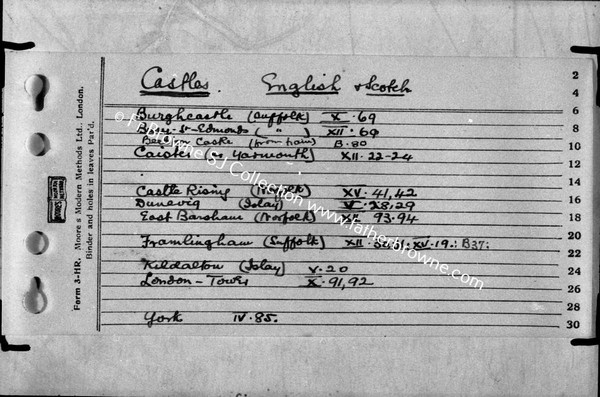 Castles. English & Scotch
Burghcastle (Suffolk) X. 69
Bury-St-Edmonds ( " ) XII. 69
Castle (from train) B. 80
Caister (nr Yarmouth) XII. 22-24
Castle Rising (Norfolk) XV. 41,42
Dunevig (Islay) V. 28,29
East Barsham (Norfolk) 93.94
Framlingham (Suffolk) XII. XV.19.: B37:
Kildalton (Islay) V. 20
London - Tower X. 91,92
York IV. 85.
2
4
6
8
10
12
14
16
18
20
22
24
26
28
30
Form 3-HR. Moore's Modern Methods Ltd., London.
Binder and holes in leaves Pat'd.
© Fr Browne SJ Collection www.fatherbrowne.com